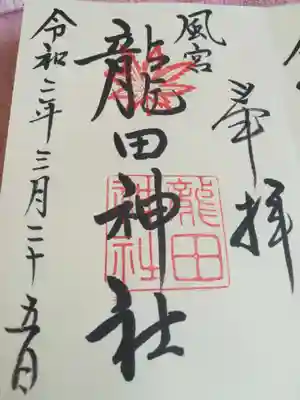 奉拝
風宮
龍田神社
龍田
神社
令和二年三月二十五日